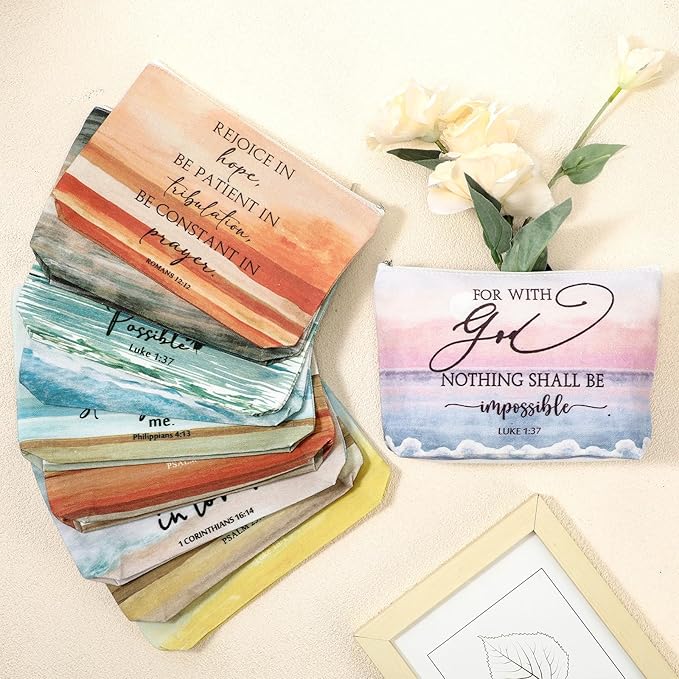 REJOICE IN
hope,
BE PATIENT IN
tribulation,
BE CONSTANT IN
prayer.
ROMANS 12:12
Possible
Luke 1:37
me.
Philippians 4:13
PSALM
in lo
1 CORINTHIANS 16:14
PSALM
FOR WITH
God
NOTHING SHALL BE
impossible.
LUKE 1:37